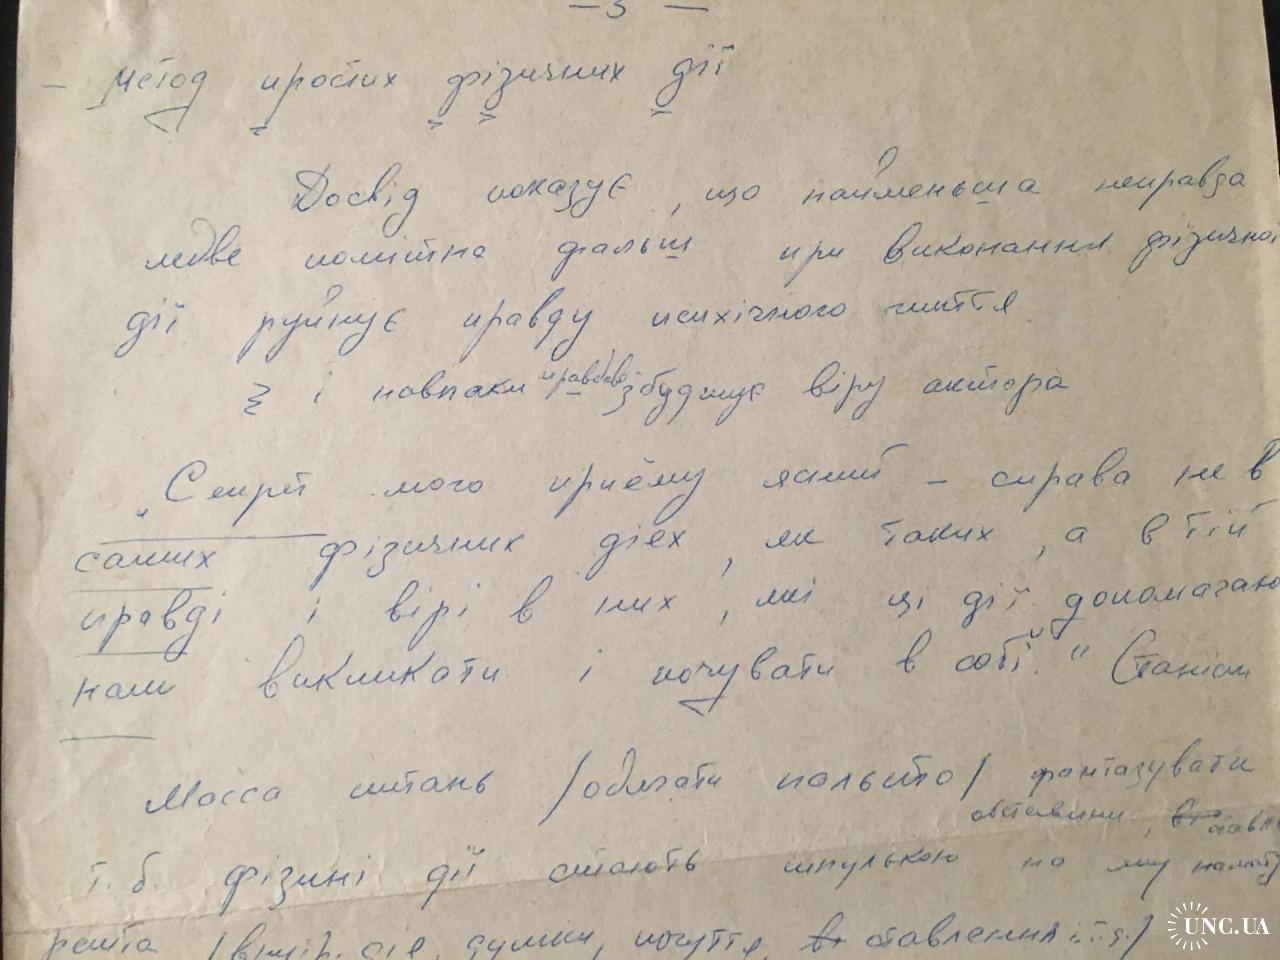 — 3 —
– Метод простих фізичних дії
Досвід показує, що найменьша неправда
ледве помітна фальш при виконання фізичної
дії руйнує правду психічного життя
і навпаки правдиве збуджує віру актора
„Секрет мого приёму ясний – справа не в
самих фізичних діех, як таких, а в тій
правді і вірі в них, які ці дії допомагаю
нам викликати і почувати в собі." Станісл
Масса питань /одягати пальто/ фантазувати
обставини, ставле
т.б. фізичні дії стають шпулькою на яку намоту
решта /внутр. дія, думки, почуття, ставлення і т.д./
UNC.UA